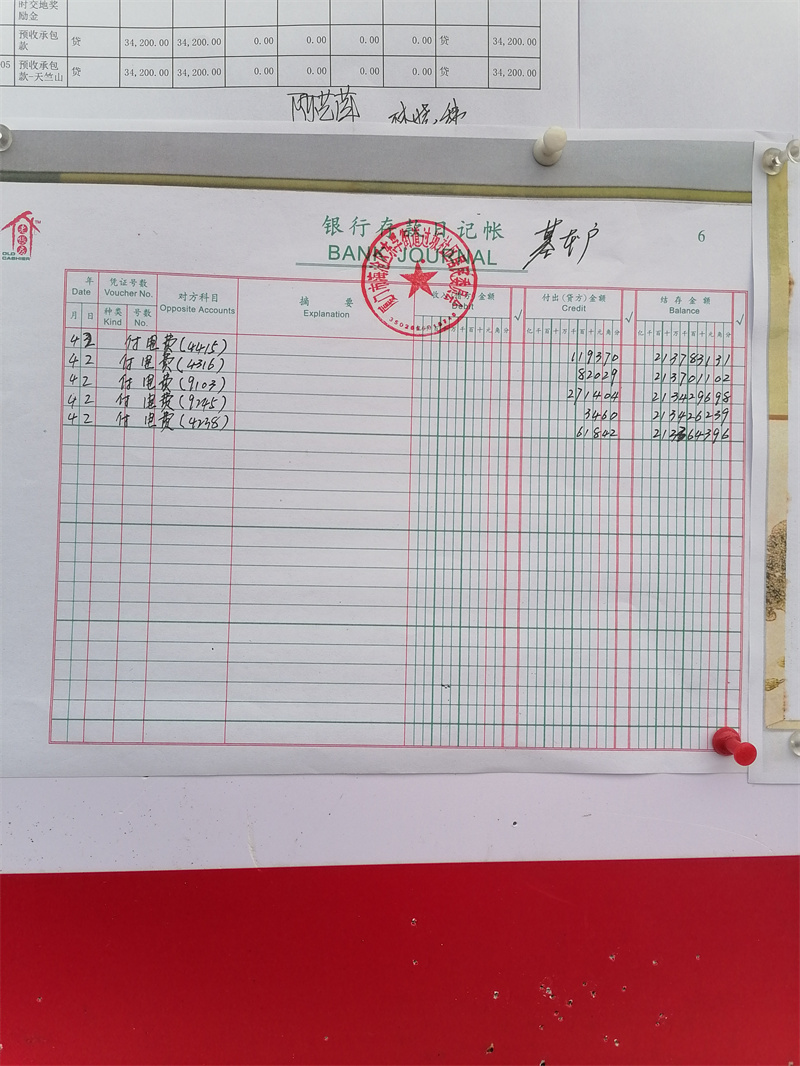 时交地奖
励金
预收承包
款 贷 34,200.00 34,200.00 0.00 0.00 0.00 0.00 贷 34,200.00
05 预收承包
款-天竺山 贷 34,200.00 34,200.00 0.00 0.00 0.00 0.00 贷 34,200.00
老账房
OLD CASHIER
TM
银行存款日记帐 基本户 6
BANK JOURNAL
年 Date 凭证号数 Voucher No. 对方科目 Opposite Accounts 摘要 Explanation 付出(贷方)金额 Credit √ 结存金额 Balance √
月 日 种类 Kind 号数 No. 亿千百十万千百十元角分 亿千百十万千百十元角分
4 2 付电费(4415) 119370 213783131
4 2 付电费(4316) 82029 213701102
4 2 付电费(9103) 271404 213429698
4 2 付电费(9245) 3460 213426239
4 2 付电费(4238) 61842 213364396